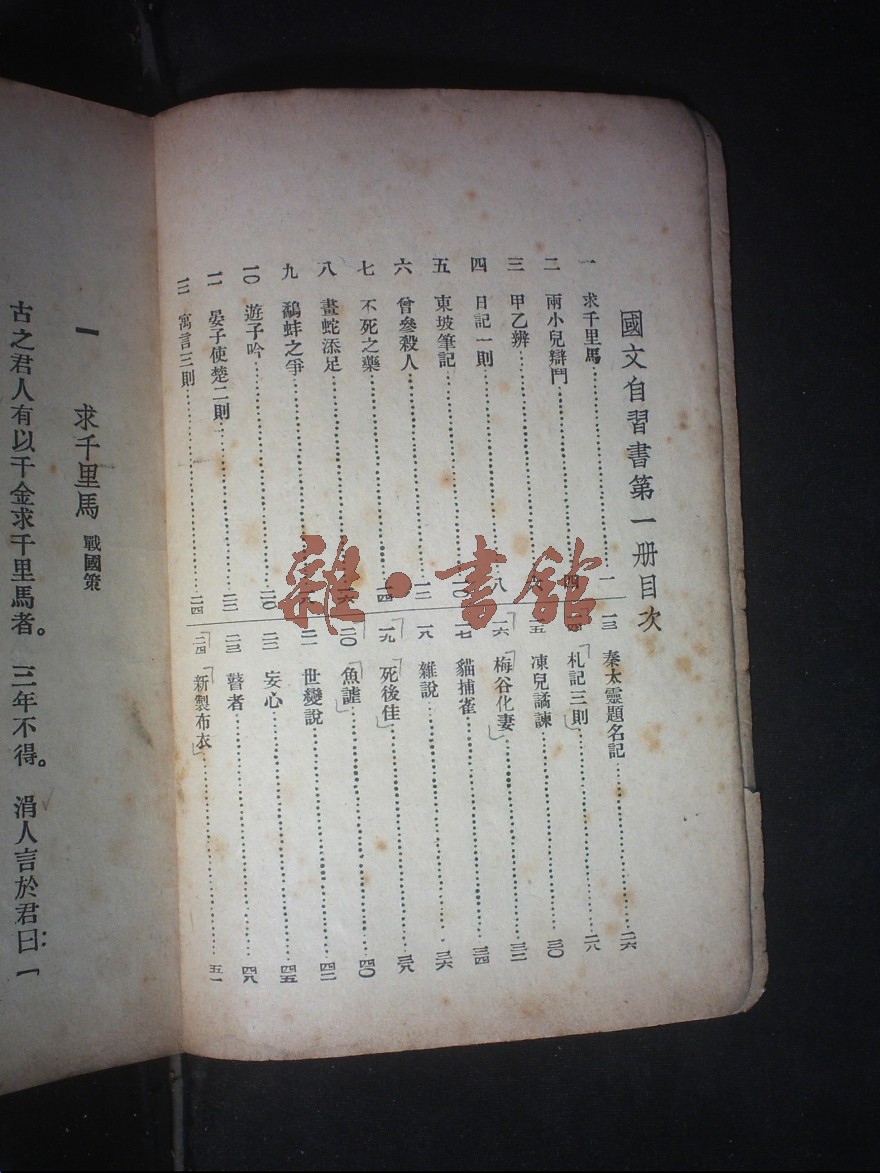 國文自習書第一册目次
一 求千里馬……一
二 兩小兒辯鬥……四
三 甲乙辨……六
四 日記一則……八
五 東坡筆記……一〇
六 曾參殺人……一二
七 不死之藥……一四
八 畫蛇添足……一六
九 鷸蚌之爭……一八
一〇 遊子吟……二〇
一一 晏子使楚二則……二二
一二 寓言三則……二四
一三 秦太靈題名記……二六
札記三則……二八
一五 凍兒譎諫……三〇
一六 梅谷化妻……三二
一七 貓捕雀……三四
一八 雜說……三六
一九 死後佳……三八
二〇 魚謔……四〇
二一 世變說……四二
二二 妄心……四五
二三 瞽者……四八
二四 新製布衣……五一
雜·書館
一 求千里馬 戰國策
古之君人有以千金求千里馬者。三年不得。涓人言於君曰：「